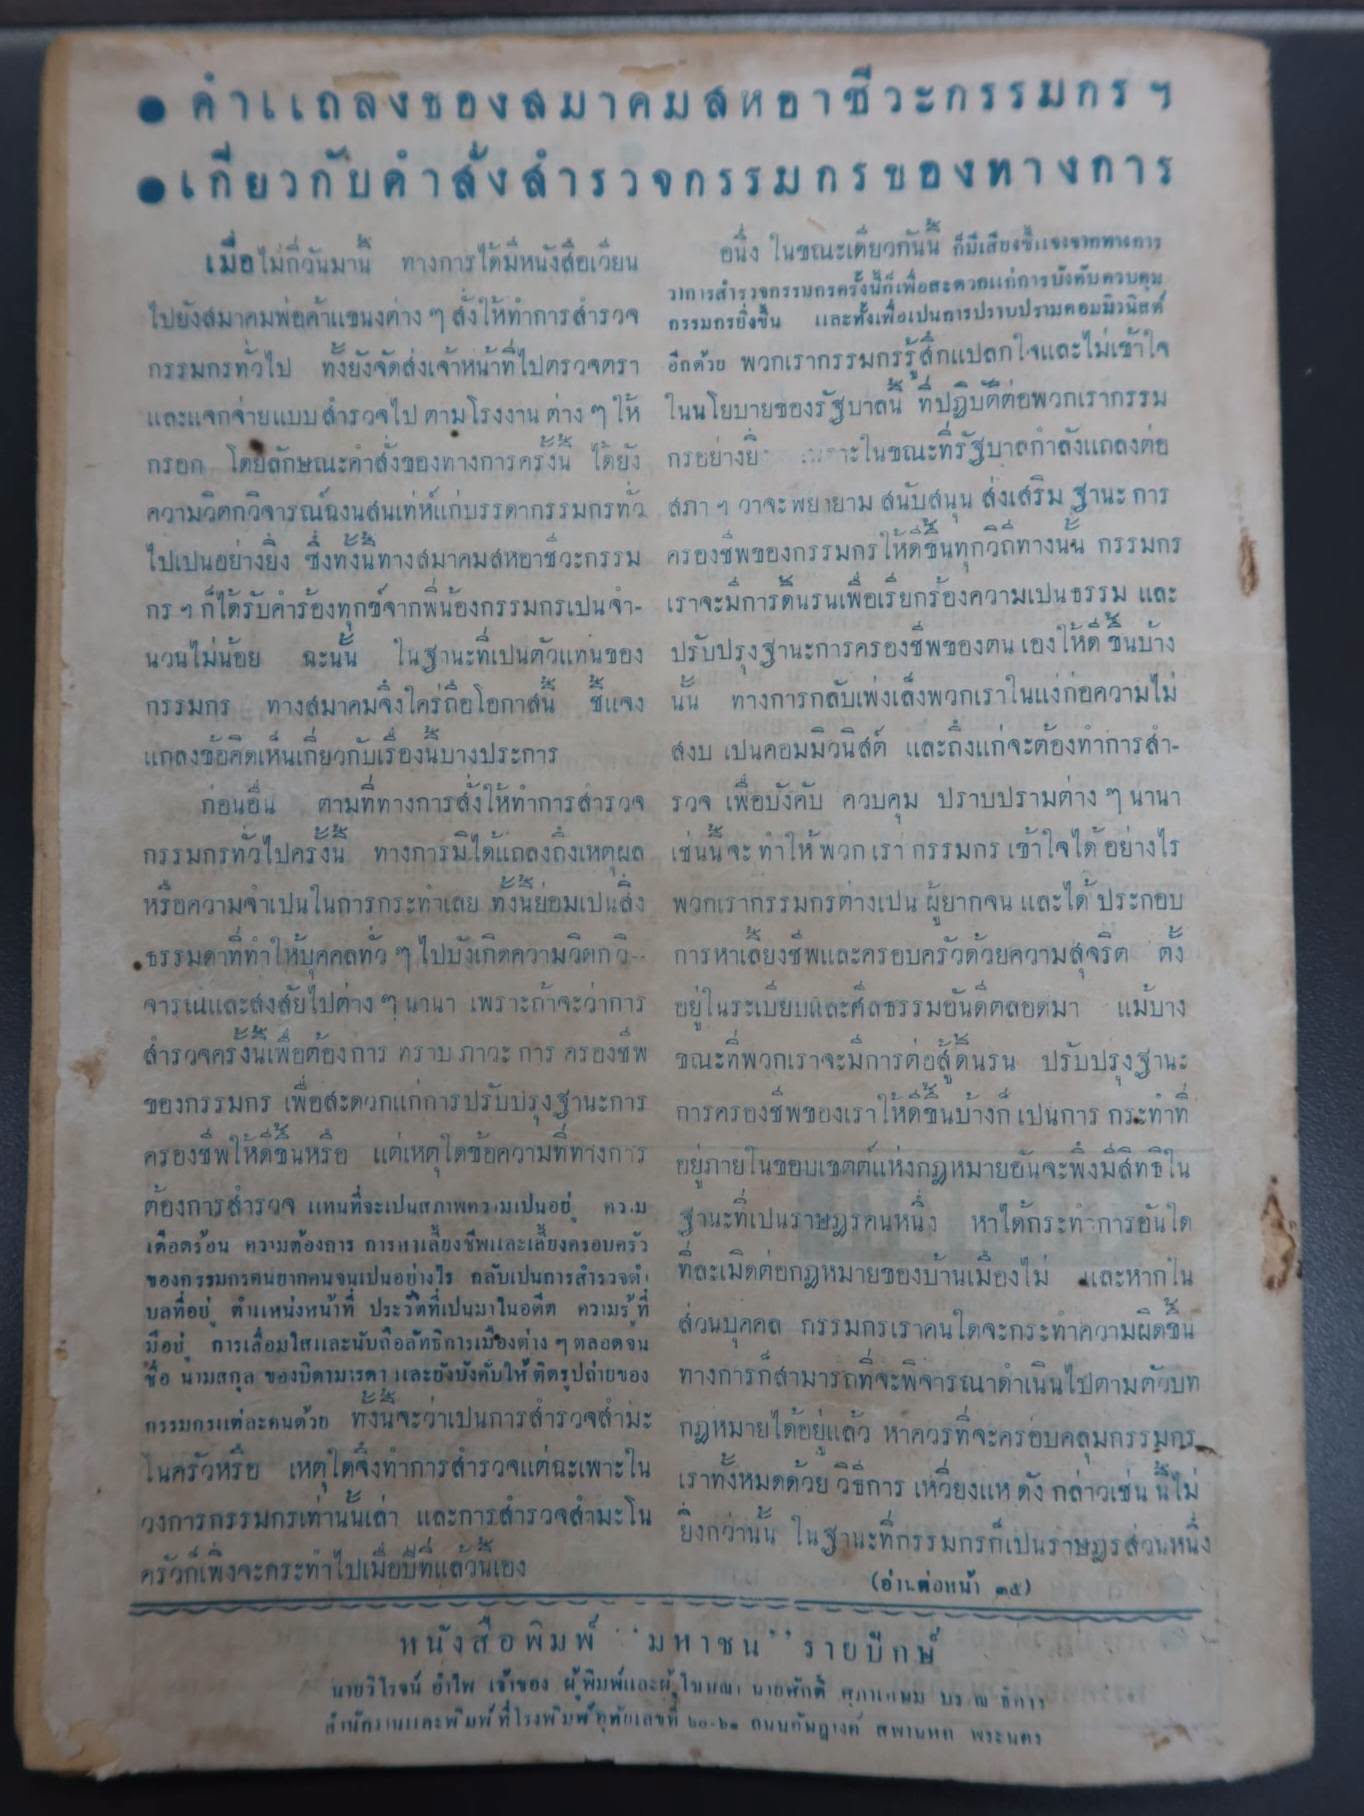 ● คำแถลงของสมาคมสหอาชีวะกรรมกรฯ
● เกี่ยวกับคำสั่งสำรวจกรรมกรของทางการ
เมื่อไม่กี่วันมานี้ ทางการได้มีหนังสือเวียน
ไปยังสมาคมพ่อค้าแขนงต่าง ๆ สั่งให้ทำการสำรวจ
กรรมกรทั่วไป ทั้งยังจัดส่งเจ้าหน้าที่ไปตรวจตรา
และแจกจ่ายแบบสำรวจไป ตามโรงงาน ต่าง ๆ ให้
กรอก โดยลักษณะคำสั่งของทางการครั้งนี้ ได้ยัง
ความวิตกวิจารณ์ฉงนสนเท่ห์แก่บรรดากรรมกรทั่ว
ไปเปนอย่างยิ่ง ซึ่งทั้งนี้ทางสมาคมสหอาชีวะกรรม
กร ฯ ก็ได้รับคำร้องทุกข์จากพี่น้องกรรมกรเปนจำ-
นวนไม่น้อย ฉะนั้น ในฐานะที่เปนตัวแทนของ
กรรมกร ทางสมาคมจึงใคร่ถือโอกาสนี้ ชี้แจง
แถลงข้อคิดเห็นเกี่ยวกับเรื่องนี้บางประการ
ก่อนอื่น ตามที่ทางการสั่งให้ทำการสำรวจ
กรรมกรทั่วไปครั้งนี้ ทางการมิได้แถลงถึงเหตุผล
หรือความจำเปนในการกระทำเลย ทั้งนี้ย่อมเปนสิ่ง
ธรรมดาที่ทำให้บุคคลทั่ว ๆ ไปบังเกิดความวิตกวิ-
จารณ์และสงสัยไปต่าง ๆ นานา เพราะถ้าจะว่าการ
สำรวจครั้งนี้เพื่อต้องการ ทราบ ภาวะ การ ครองชีพ
ของกรรมกร เพื่อสะดวกแก่การปรับปรุงฐานะการ
ครองชีพให้ดีขึ้นหรือ แต่เหตุใดข้อความที่ทางการ
ต้องการสำรวจ แทนที่จะเปนสภาพความเปนอยู่ ความ
เดือดร้อน ความต้องการ การหาเลี้ยงชีพและเลี้ยงครอบครัว
ของกรรมกรคนยากคนจนเปนอย่างไร กลับเปนการสำรวจตำ
บลที่อยู่ ตำแหน่งหน้าที่ ประวัติที่เปนมาในอดีต ความรู้ที่
มีอยู่ การเลื่อมใสและนับถือลัทธิการเมืองต่าง ๆ ตลอดจน
ชื่อ นามสกุล ของบิดามารดา และยังบังคับให้ ติดรูปถ่ายของ
กรรมกรแต่ละคนด้วย ทั้งนี้จะว่าเปนการสำรวจสำมะ
โนครัวหรือ เหตุใดจึงทำการสำรวจแต่ฉะเพาะใน
วงการกรรมกรเท่านั้นเล่า และการสำรวจสำมะโน
ครัวก็เพิ่งจะกระทำไปเมื่อปีที่แล้วนี้เอง
อนึ่ง ในขณะเดียวกันนี้ ก็มีเสียงชี้แจงจากทางการ
ว่าการสำรวจกรรมกรครั้งนี้ก็เพื่อสะดวกแก่การบังคับควบคุม
กรรมกรยิ่งขึ้น และทั้งเพื่อเปนการปราบปรามคอมมิวนิสต์
อีกด้วย พวกเรากรรมกรรู้สึกแปลกใจและไม่เข้าใจ
ในนโยบายของรัฐบาลนี้ ที่ปฏิบัติต่อพวกเรากรรม
กรอย่างยิ่ง ในขณะที่รัฐบาลกำลังแถลงต่อ
สภา ฯ ว่าจะพยายาม สนับสนุน ส่งเสริม ฐานะ การ
ครองชีพของกรรมกรให้ดีขึ้นทุกวิถีทางนั้น กรรมกร
เราจะมีการดิ้นรนเพื่อเรียกร้องความเปนธรรม และ
ปรับปรุงฐานะการครองชีพของตน เองให้ดี ขึ้นบ้าง
นั้น ทางการกลับเพ่งเล็งพวกเราในแง่ก่อความไม่
สงบ เปนคอมมิวนิสต์ และถึงแก่จะต้องทำการสำ-
รวจ เพื่อบังคับ ควบคุม ปราบปรามต่าง ๆ นานา
เช่นนี้จะ ทำให้ พวก เรา กรรมกร เข้าใจได้ อย่างไร
พวกเรากรรมกรต่างเปน ผู้ยากจน และได้ ประกอบ
การหาเลี้ยงชีพและครอบครัวด้วยความสุจริต ตั้ง
อยู่ในระเบียบและศีลธรรมอันดีตลอดมา แม้บาง
ขณะที่พวกเราจะมีการต่อสู้ดิ้นรน ปรับปรุงฐานะ
การครองชีพของเราให้ดีขึ้นบ้างก็ เปนการ กระทำที่
อยู่ภายในขอบเขตต์แห่งกฎหมายอันจะพึงมีสิทธิใน
ฐานะที่เปนราษฎรคนหนึ่ง หาได้กระทำการอันใด
ที่ละเมิดต่อกฎหมายของบ้านเมืองไม่ และหากใน
ส่วนบุคคล กรรมกรเราคนใดจะกระทำความผิดขึ้น
ทางการก็สามารถที่จะพิจารณาดำเนินไปตามตัวบท
กฎหมายได้อยู่แล้ว หาควรที่จะครอบคลุมกรรมกร
เราทั้งหมดด้วย วิธีการ เหวี่ยงแห ดัง กล่าวเช่น นี้ไม่
ยิ่งกว่านั้น ในฐานะที่กรรมกรก็เปนราษฎรส่วนหนึ่ง
(อ่านต่อหน้า ๑๕)
หนังสือพิมพ์ "มหาชน" รายปักษ์
นายวิโรจน์ อำไพ เจ้าของ ผู้พิมพ์และผู้โฆษณา นายศักดิ์ สุภาเกษม บรรณาธิการ
สำนักงานและพิมพ์ที่โรงพิมพ์อุทัยเลขที่ ๖๐-๖๑ ถนนกันฏางค์ สพานหก พระนคร